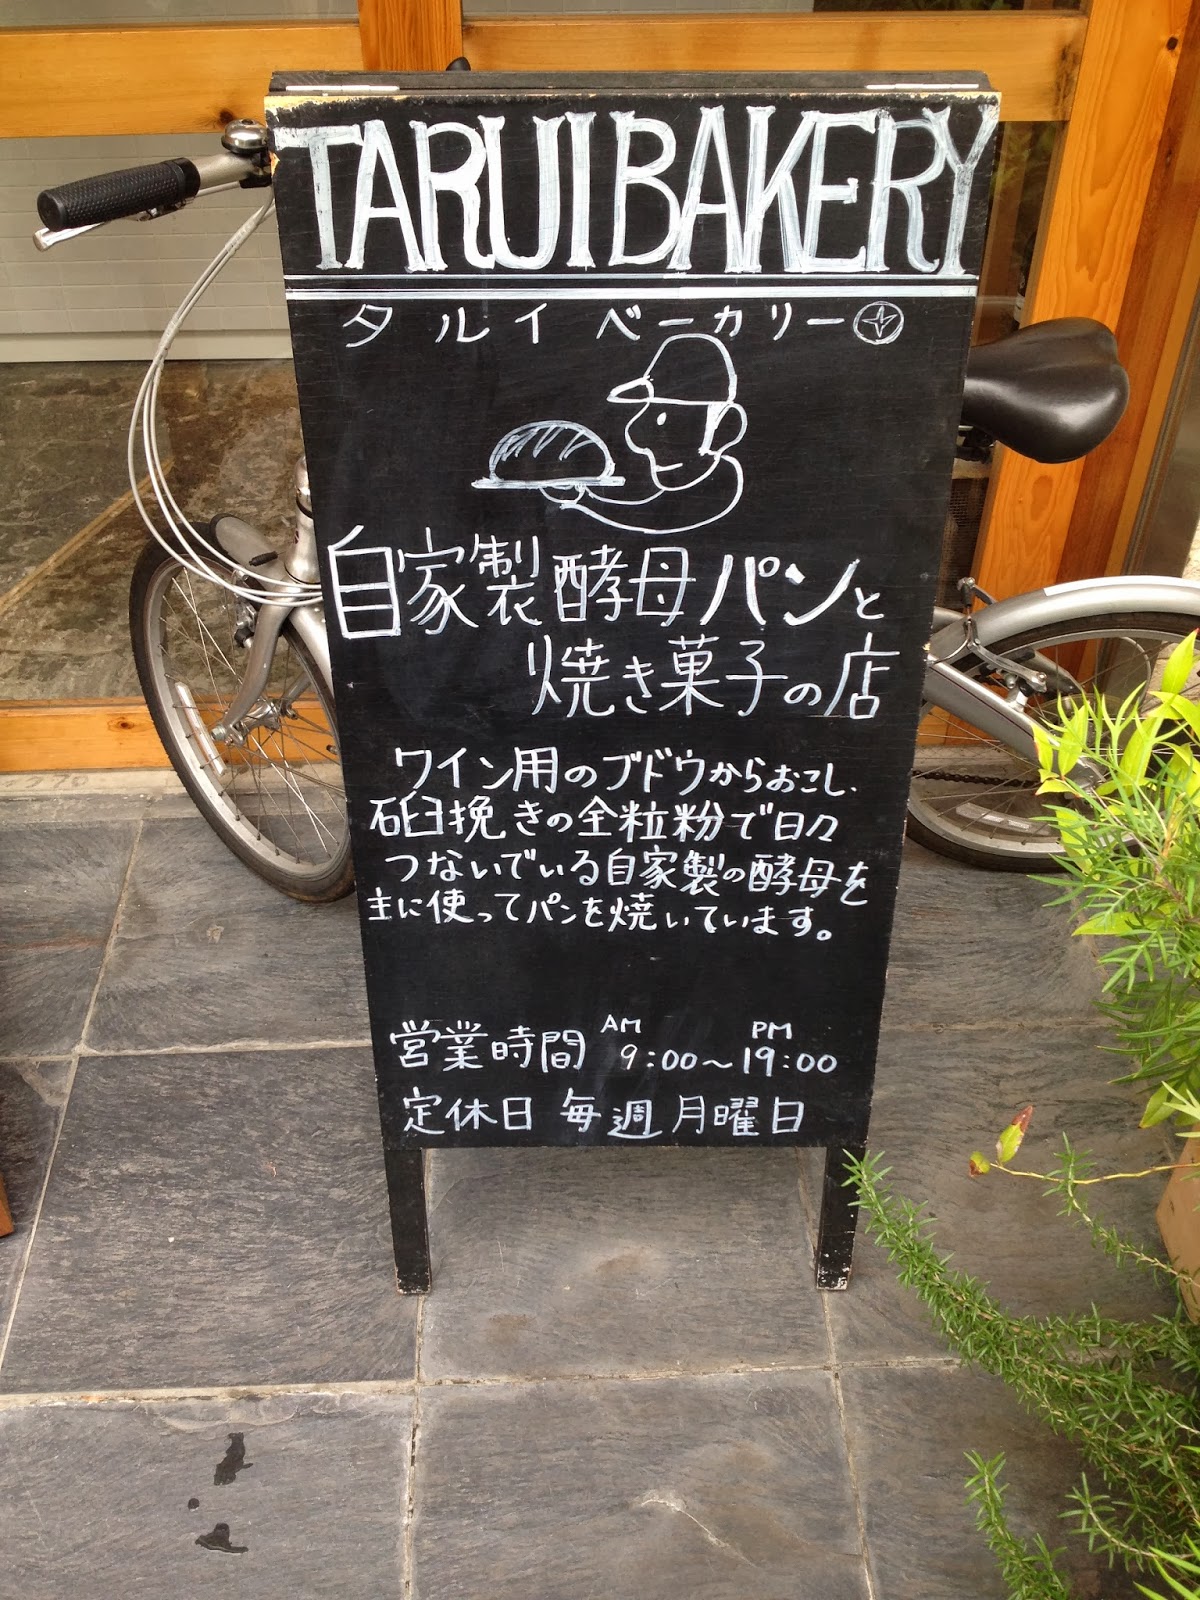 TARUI BAKERY
タルイベーカリー
自家製酵母パンと
焼き菓子の店
ワイン用のブドウからおこし、
石臼挽きの全粒粉で日々
つないでいる自家製の酵母を
主に使ってパンを焼いています。
AM PM
営業時間 9:00~19:00
定休日 毎週月曜日